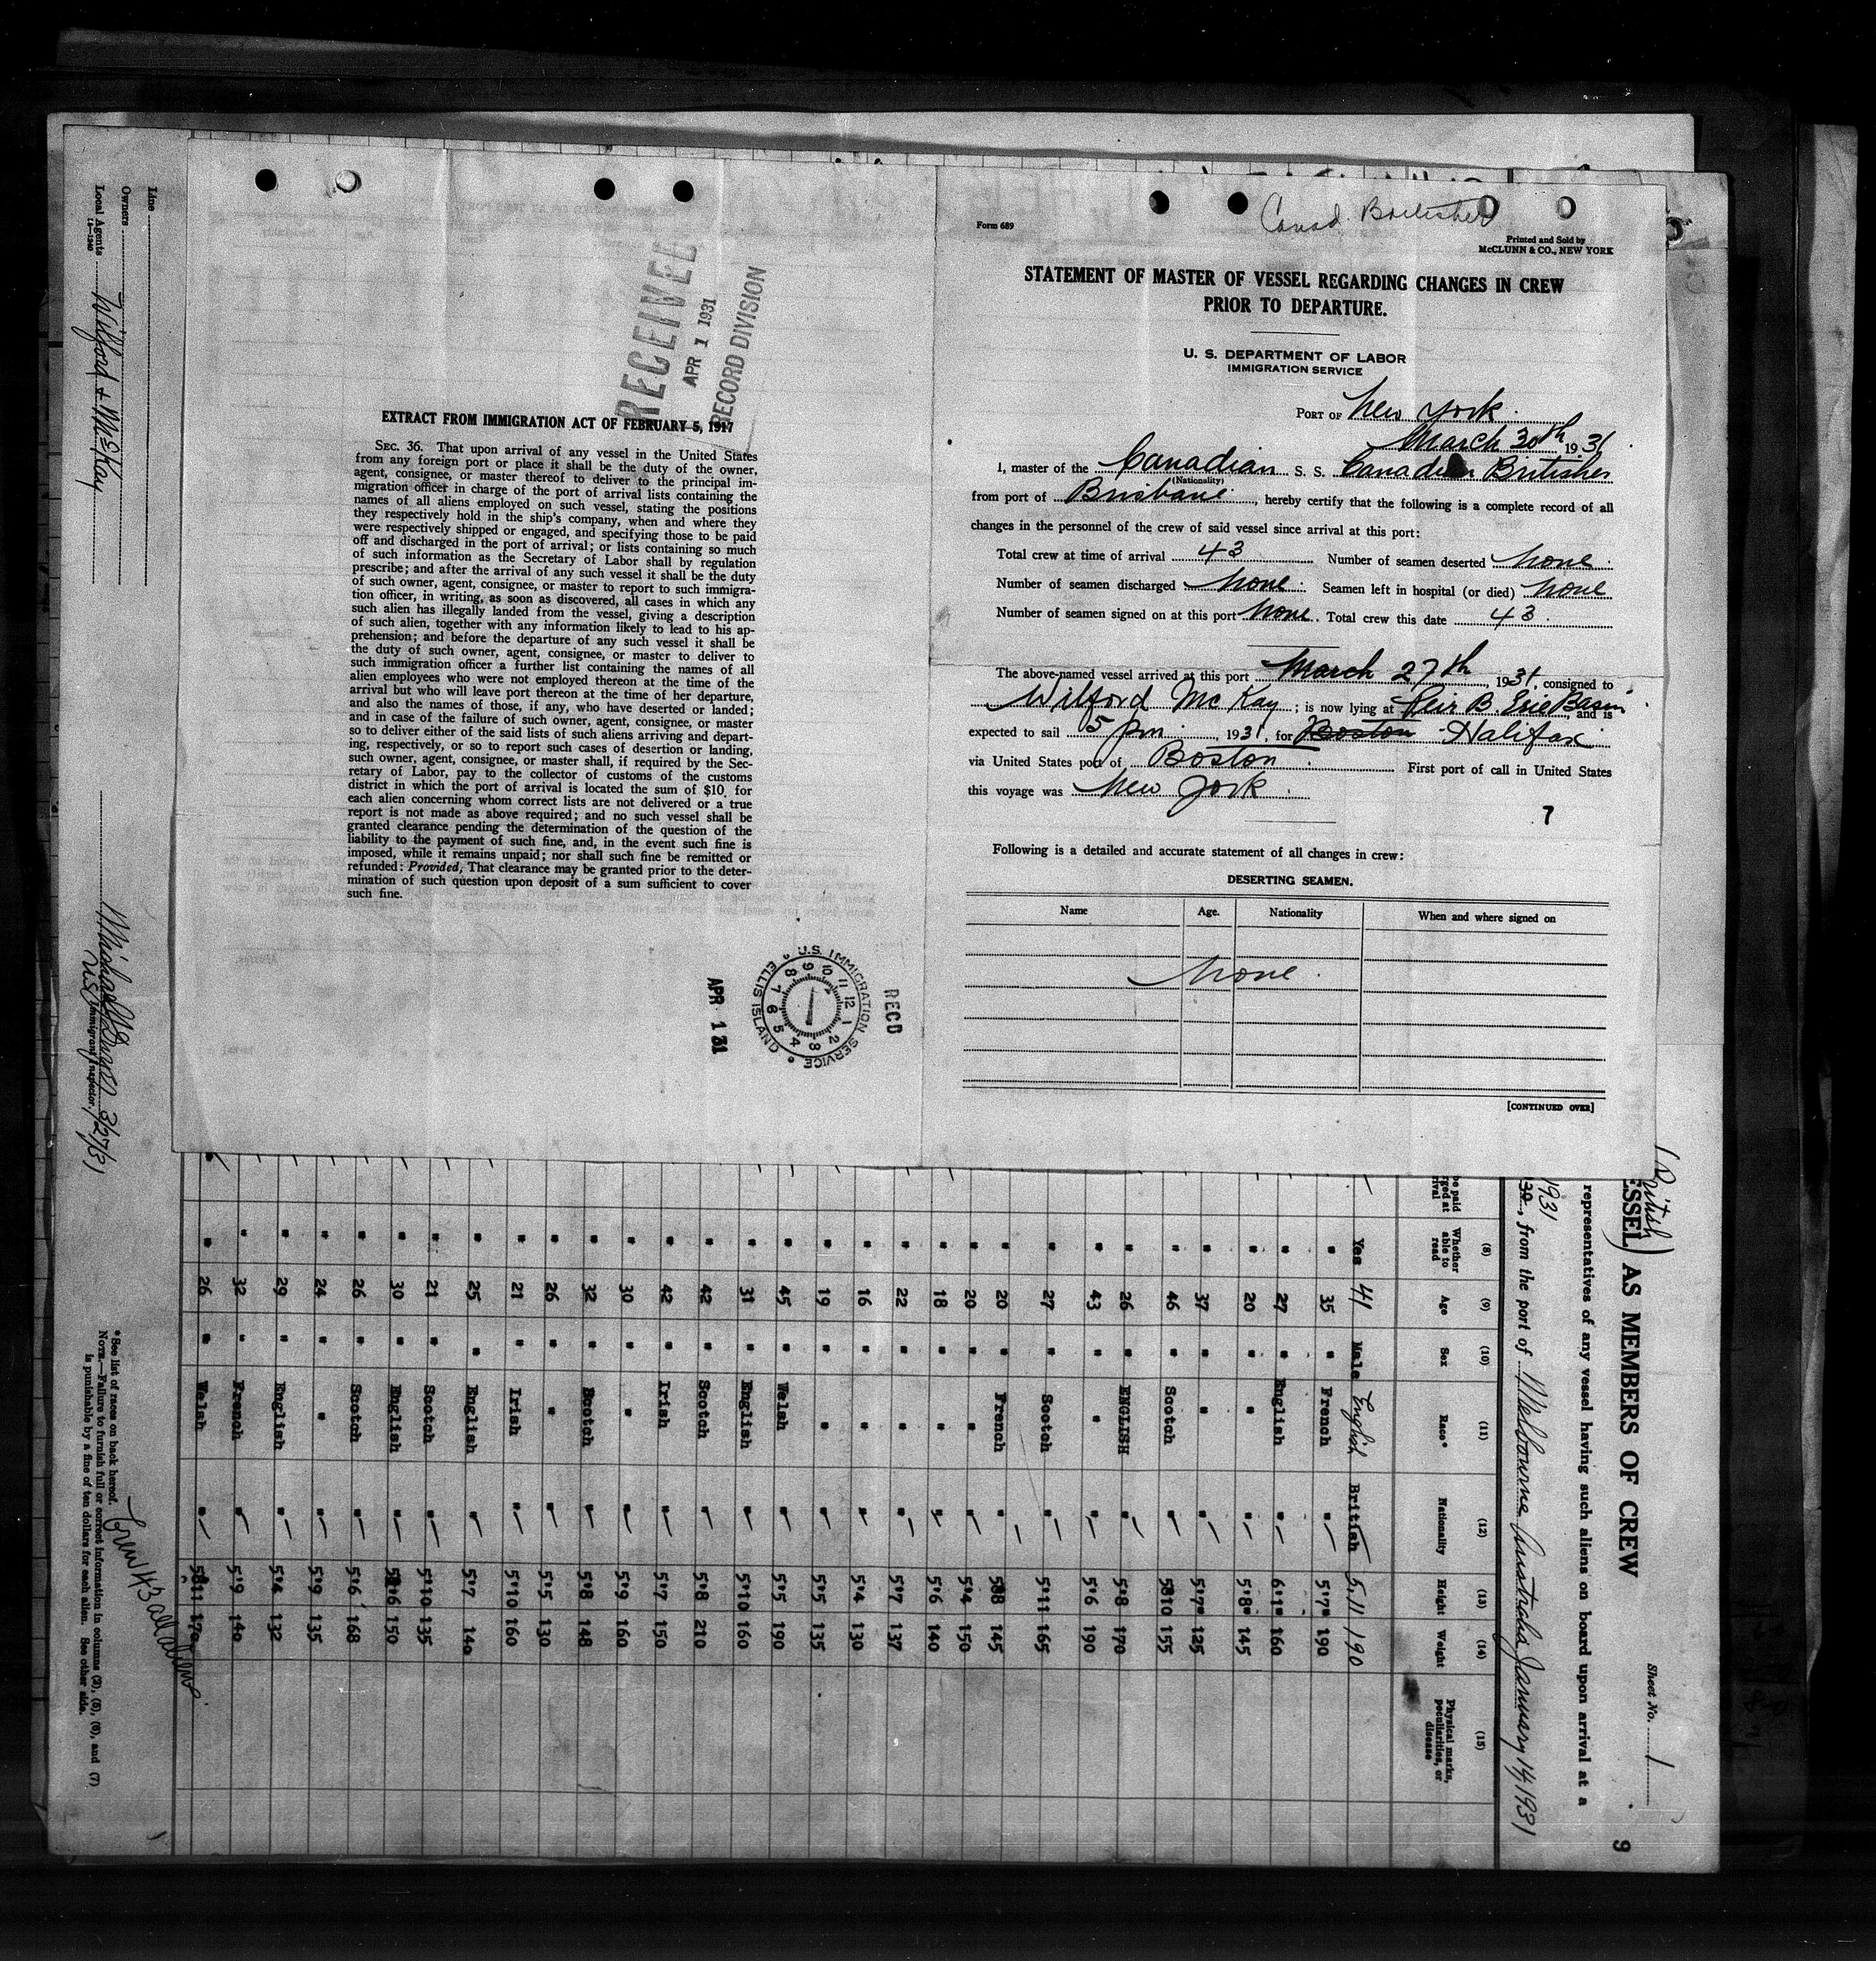 Line
Owners
Local Agents Wilford & McKay
14—1240
Immigrant Inspector.
3/27/31
RECEIVED
APR 1 1931
RECORD DIVISION
EXTRACT FROM IMMIGRATION ACT OF FEBRUARY 5, 1917
SEC. 36. That upon arrival of any vessel in the United States
from any foreign port or place it shall be the duty of the owner,
agent, consignee, or master thereof to deliver to the principal im-
migration officer in charge of the port of arrival lists containing the
names of all aliens employed on such vessel, stating the positions
they respectively hold in the ship's company, when and where they
were respectively shipped or engaged, and specifying those to be paid
off and discharged in the port of arrival; or lists containing so much
of such information as the Secretary of Labor shall by regulation
prescribe; and after the arrival of any such vessel it shall be the duty
of such owner, agent, consignee, or master to report to such immigra-
tion officer, in writing, as soon as discovered, all cases in which any
such alien has illegally landed from the vessel, giving a description
of such alien, together with any information likely to lead to his ap-
prehension; and before the departure of any such vessel it shall be
the duty of such owner, agent, consignee, or master to deliver to
such immigration officer a further list containing the names of all
alien employees who were not employed thereon at the time of the
arrival but who will leave port thereon at the time of her departure,
and also the names of those, if any, who have deserted or landed;
and in case of the failure of such owner, agent, consignee, or master
so to deliver either of the said lists of such aliens arriving and depart-
ing, respectively, or so to report such cases of desertion or landing,
such owner, agent, consignee, or master shall, if required by the Sec-
retary of Labor, pay to the collector of customs of the customs
district in which the port of arrival is located the sum of $10 for
each alien concerning whom correct lists are not delivered or a true
report is not made as above required; and no such vessel shall be
granted clearance pending the determination of the question of the
liability to the payment of such fine, and, in the event such fine is
imposed, while it remains unpaid; nor shall such fine be remitted or
refunded: Provided, That clearance may be granted prior to the deter-
mination of such question upon deposit of a sum sufficient to cover
such fine.
APR 1 31
U.S. IMMIGRATION SERVICE ELLIS ISLAND
1 2 3 4 5 6 7 8 9 10 11 12
RECD
Form 689
Canad. Britisher
Printed and Sold by
McCLUNN & CO., NEW YORK
STATEMENT OF MASTER OF VESSEL REGARDING CHANGES IN CREW
PRIOR TO DEPARTURE.
U. S. DEPARTMENT OF LABOR
IMMIGRATION SERVICE
PORT OF New York.
March 30th 1931
I, master of the Canadian S. S. Canadian Britisher
(Nationality)
from port of Brisbane, hereby certify that the following is a complete record of all
changes in the personnel of the crew of said vessel since arrival at this port:
Total crew at time of arrival 43 Number of seamen deserted None
Number of seamen discharged None Seamen left in hospital (or died) None
Number of seamen signed on at this port None. Total crew this date 43
The above-named vessel arrived at this port March 27th, 1931, consigned to
Wilford McKay; is now lying at Peir B. Erie Basin, and is
expected to sail 5 pm, 1931, for Boston Halifax
via United States port of Boston. First port of call in United States
this voyage was New York
7
Following is a detailed and accurate statement of all changes in crew:
DESERTING SEAMEN.
Name Age. Nationality When and where signed on
None.
[CONTINUED OVER]
(British
ESSEL) AS MEMBERS OF CREW
Sheet No. 1
9
representatives of any vessel having such aliens on board upon arrival at a
1931
30, from the port of Melbourne Australia January 14, 1931
(8) (9) (10) (11) (12) (13) (14) (15)
Whether able to read Age Sex Race* Nationality Height Weight Physical marks, peculiarities, or disease
Yes 41 Male English British 5.11 190
" 35 " French " 5'7" 190
" 27 " English " 6'1" 160
" 20 " " " 5'8" 145
" 37 " " " 5'7" 125
" 46 " Scotch " 5'10 155
" 26 " ENGLISH " 5'8 170
" 43 " " " 5'6 190
" 27 " Scotch " 5'11 165
" 20 " French " 5'8 145
" 20 " " " 5'4 150
" 18 " " " 5'6 140
" 22 " " " 5'7 137
" 16 " " " 5'4 130
" 19 " " " 5'5 135
" 45 " Welsh " 5'5 190
" 31 " English " 5'10 160
" 42 " Scotch " 5'8 210
" 42 " Irish " 5'7 150
" 30 " " " 5'9 160
" 32 " Scotch " 5'8 148
" 26 " " " 5'5 130
" 21 " Irish " 5'10 160
" 25 " English " 5'7 140
" 21 " Scotch " 5'10 135
" 30 " English " 5'6 150
" 26 " Scotch " 5'6 168
" 24 " " " 5'9 135
" 29 " English " 5'4 132
" 32 " French " 5'9 140
" 26 " Welsh " 5'11 170
Crew 43 all aliens
*See list of races on back hereof.
NOTE.—Failure to furnish full or correct information in columns (2), (5), (6), and (7)
is punishable by a fine of ten dollars for each alien. See other side.